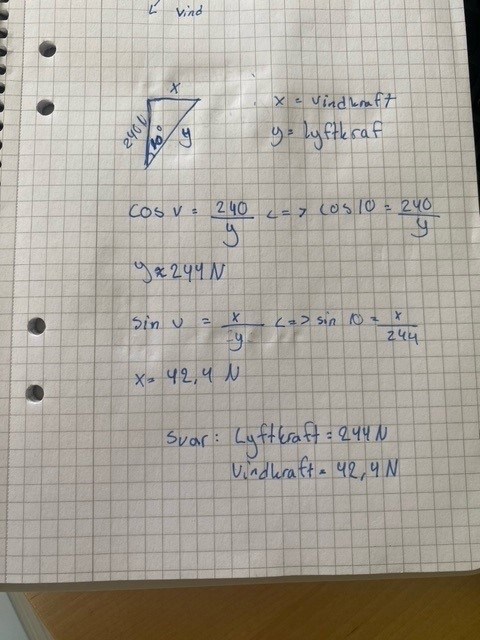 Vind
x
240N
10°
y
x = vindkraft
y = Lyftkraf
cos v = 240/y <=> cos 10 = 240/y
y ≈ 244 N
sin v = x/y <=> sin 10 = x/244
x = 42,4 N
Svar: Lyftkraft = 244 N
Vindkraft = 42,4 N